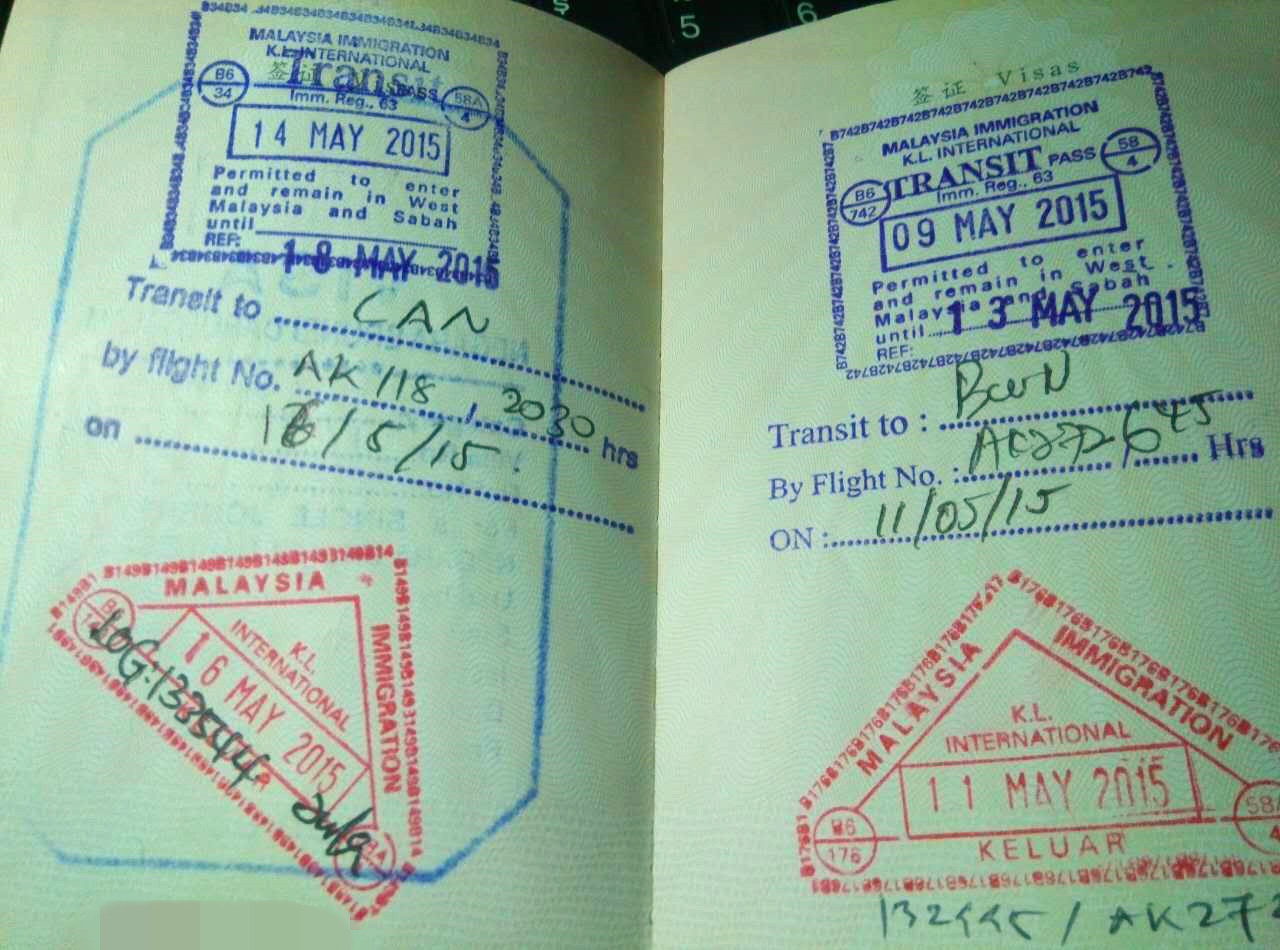 MALAYSIA IMMIGRATION
K.L. INTERNATIONAL
签证
Transit PASS
B6
34
58A
4
Imm. Reg., 63
14 MAY 2015
Permitted to enter
and remain in West
Malaysia and Sabah
until
REF:
18 MAY 2015
Transit to CAN
by flight No. AK 118, 2030 hrs
on 16/5/15.
MALAYSIA
IMMIGRATION
K.L.
INTERNATIONAL
16 MAY 2015
LOG:
签证 Visas
MALAYSIA IMMIGRATION
K.L. INTERNATIONAL
TRANSIT PASS
58
4
B6
742
Imm. Reg., 63
09 MAY 2015
Permitted to enter
and remain in West
Malaysia and Sabah
until 13 MAY 2015
REF:
Transit to : BWN
By Flight No. : 645 Hrs
ON : 11/05/15
MALAYSIA
IMMIGRATION
K.L.
INTERNATIONAL
11 MAY 2015
B6
176
58A
4
KELUAR